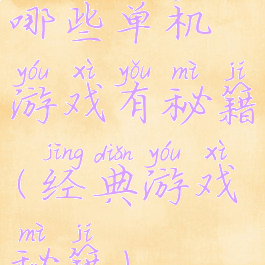 哪些单机
yóu xì yǒu mì jí
游戏有秘籍
jīng diǎn yóu xì
(经典游戏
mì jí
秘籍)